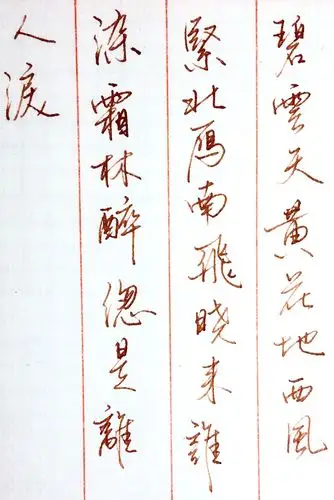 碧雲天黄花地西風
緊北雁南飛曉來誰
染霜林醉總是離
人淚